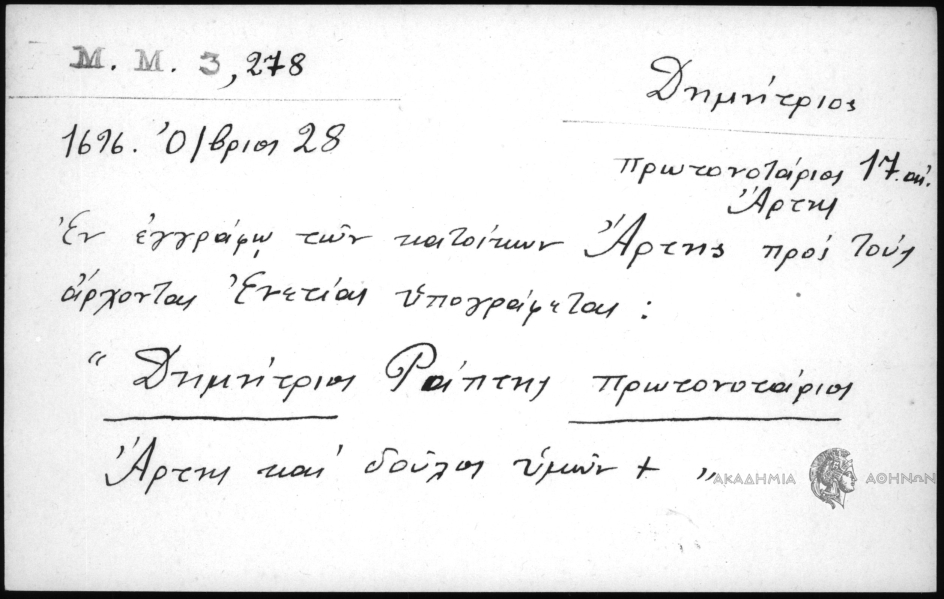 Μ. Μ. 3,278
Δημήτριος
1696. Ὀ/βριος 28
πρωτονοτάριος 17. αἰ.
Ἄρτης
Ἐν ἐγγράφῳ τῶν κατοίκων Ἄρτης πρὸς τοὺς
ἄρχοντας Ἐνετίας ὑπογράφεται :
“ Δημήτριος Ράπτης πρωτονοτάριος
Ἄρτης καὶ δοῦλος ὑμῶν + ”
ΑΚΑΔΗΜΙΑ ΑΘΗΝΩΝ